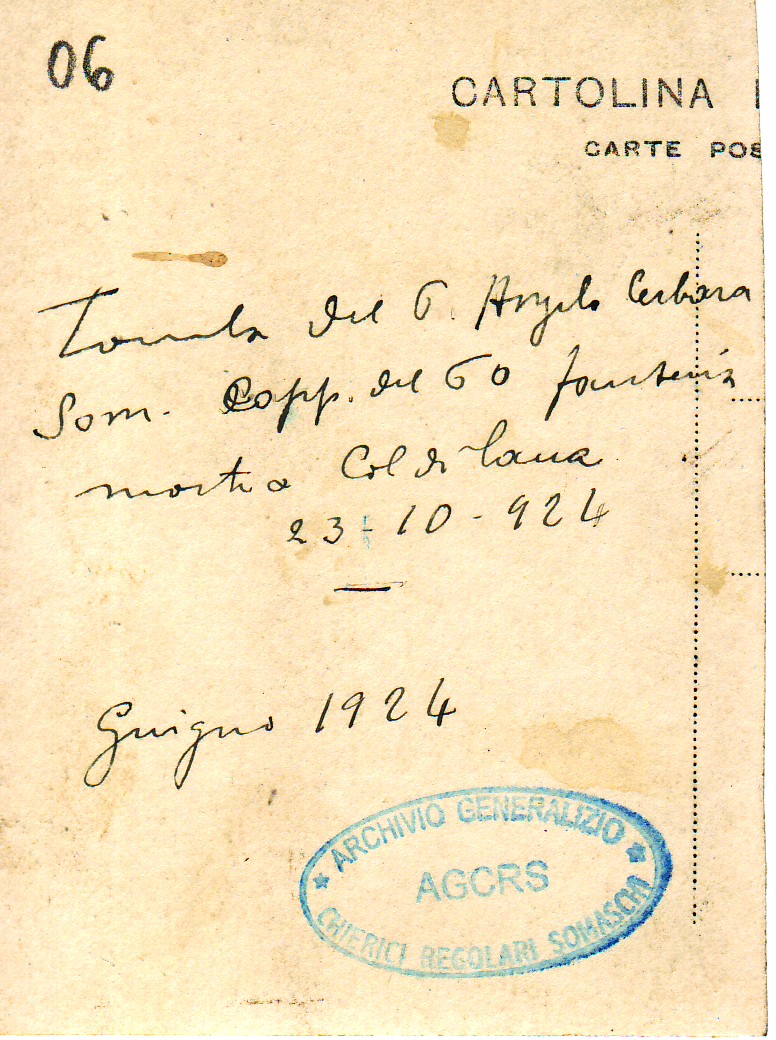 06
CARTOLINA
CARTE POS
Tomba del P. Angelo Cerbara
Som. Capp. del 60 fanteria
morto a Col di Lana
23-10-924
Giugno 1924
ARCHIVIO GENERALIZIO
AGCRS
CHIERICI REGOLARI SOMASCHI